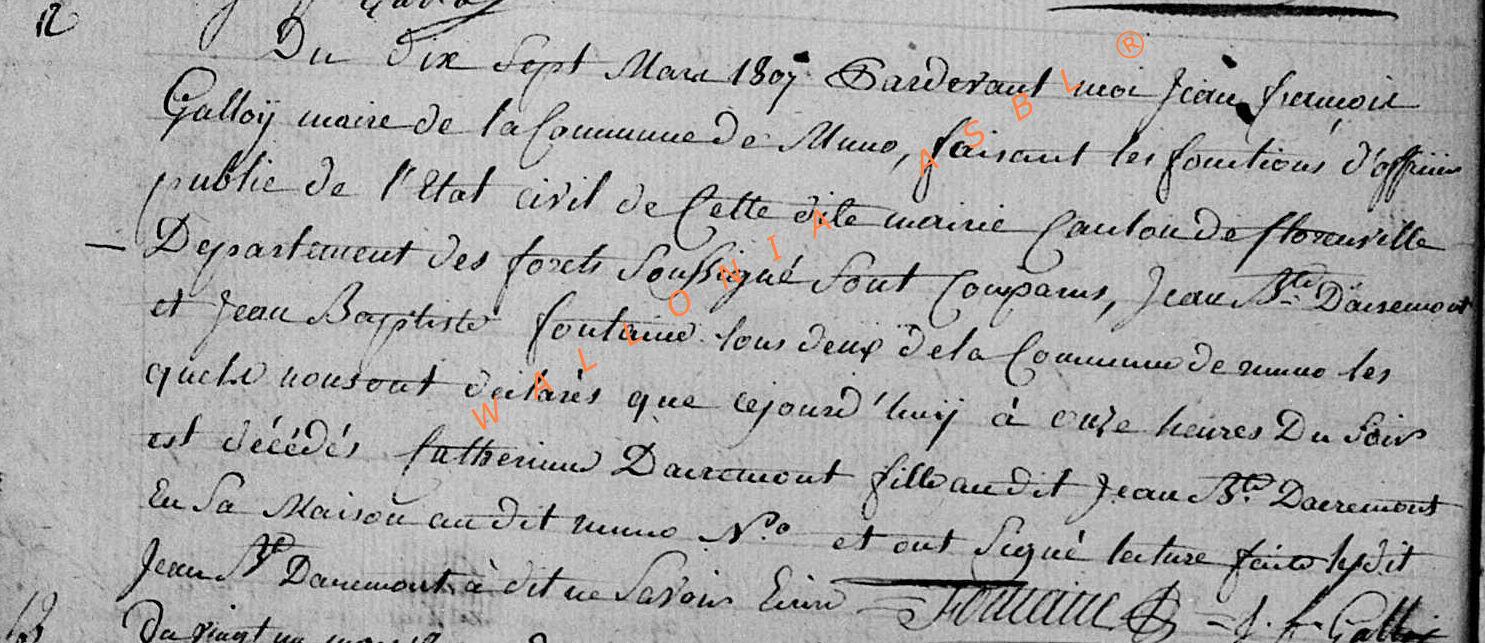 12
Du dix Sept Mars 1807 Pardevant moi Jean francois
Galloÿ maire de la Commune de Muno, faisant les fonctions d'officier
public de l'Etat civil de Cette dite mairie Canton de florenville
Departement des forets Soussigné Sont Comparus, Jean Bte Dairemont
et Jean Baptiste fontaine tous deux de la Commune de muno les
quels nous ont declarés que cejourd'huÿ à onze heures Du Soir
est décédés Catherine Dairemont fille au dit Jean Bte Dairemont
En Sa Maison au dit muno N.o et ont Signé lecture faite ledit
Jean Bte Dairemont à dit ne Savoir Ecrire Fontaine J. f. Galloÿ
13
Du vingt un mars
WALLONIA ASBL ®